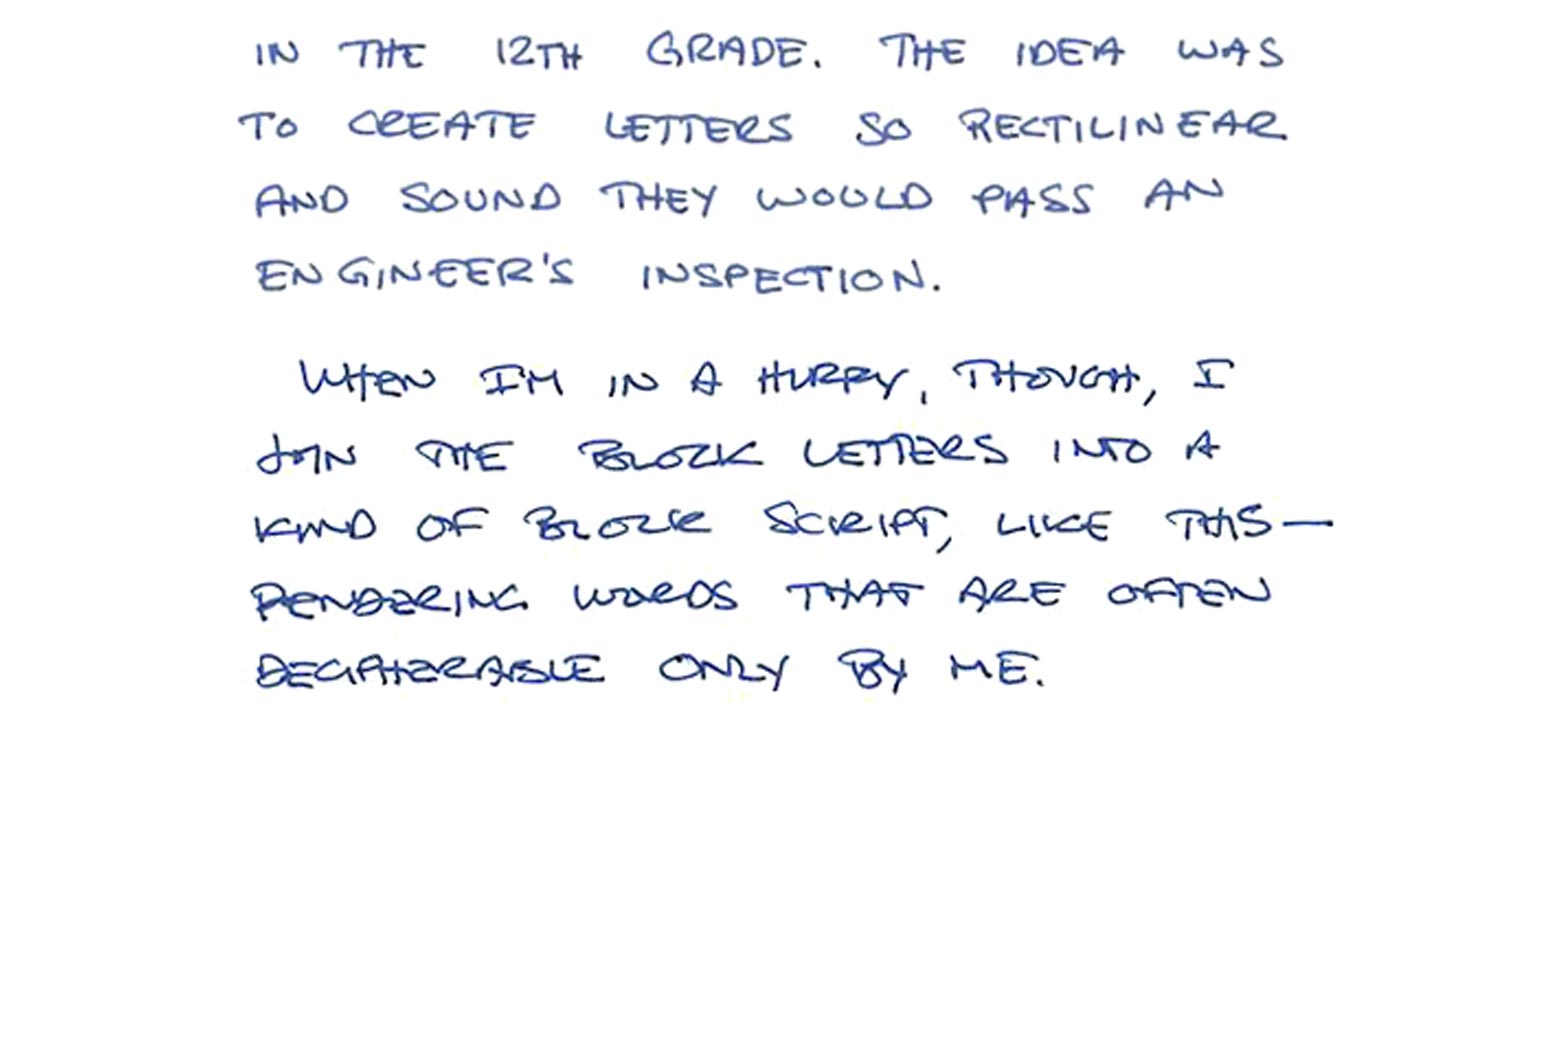 IN THE 12TH GRADE. THE IDEA WAS
TO CREATE LETTERS SO RECTILINEAR
AND SOUND THEY WOULD PASS AN
ENGINEER'S INSPECTION.
WHEN I'M IN A HURRY, THOUGH, I
JOIN THE BLOCK LETTERS INTO A
KIND OF BLOCK SCRIPT, LIKE THIS—
RENDERING WORDS THAT ARE OFTEN
DECIPHERABLE ONLY BY ME.